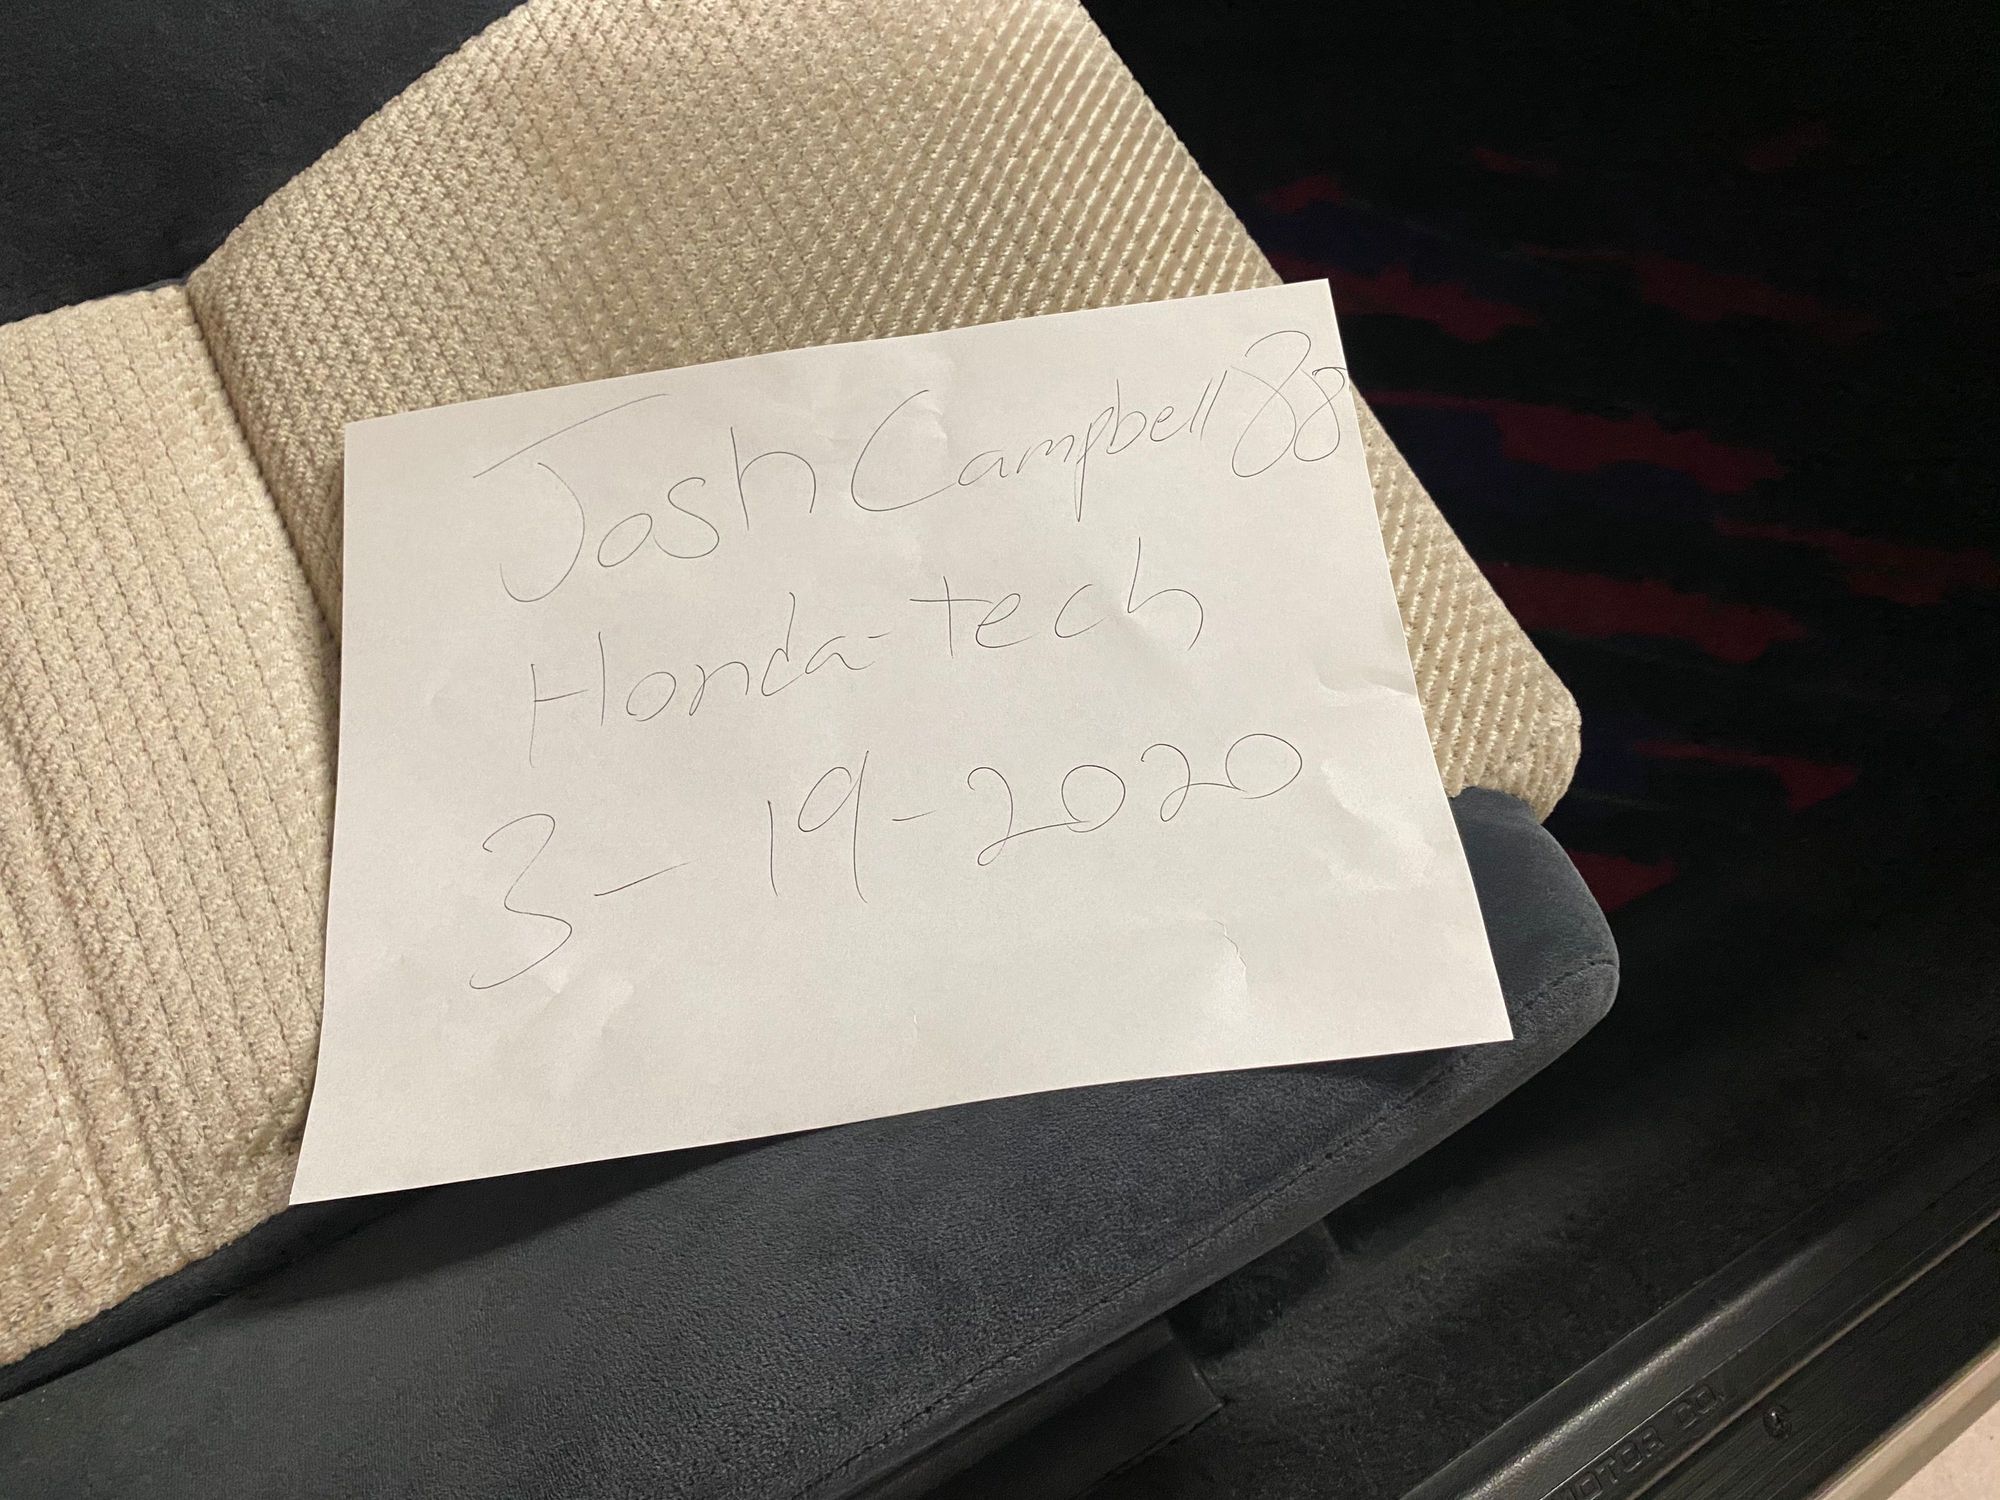 JoshCampbell88
Honda-tech
3-19-2020
MOTOR CO.